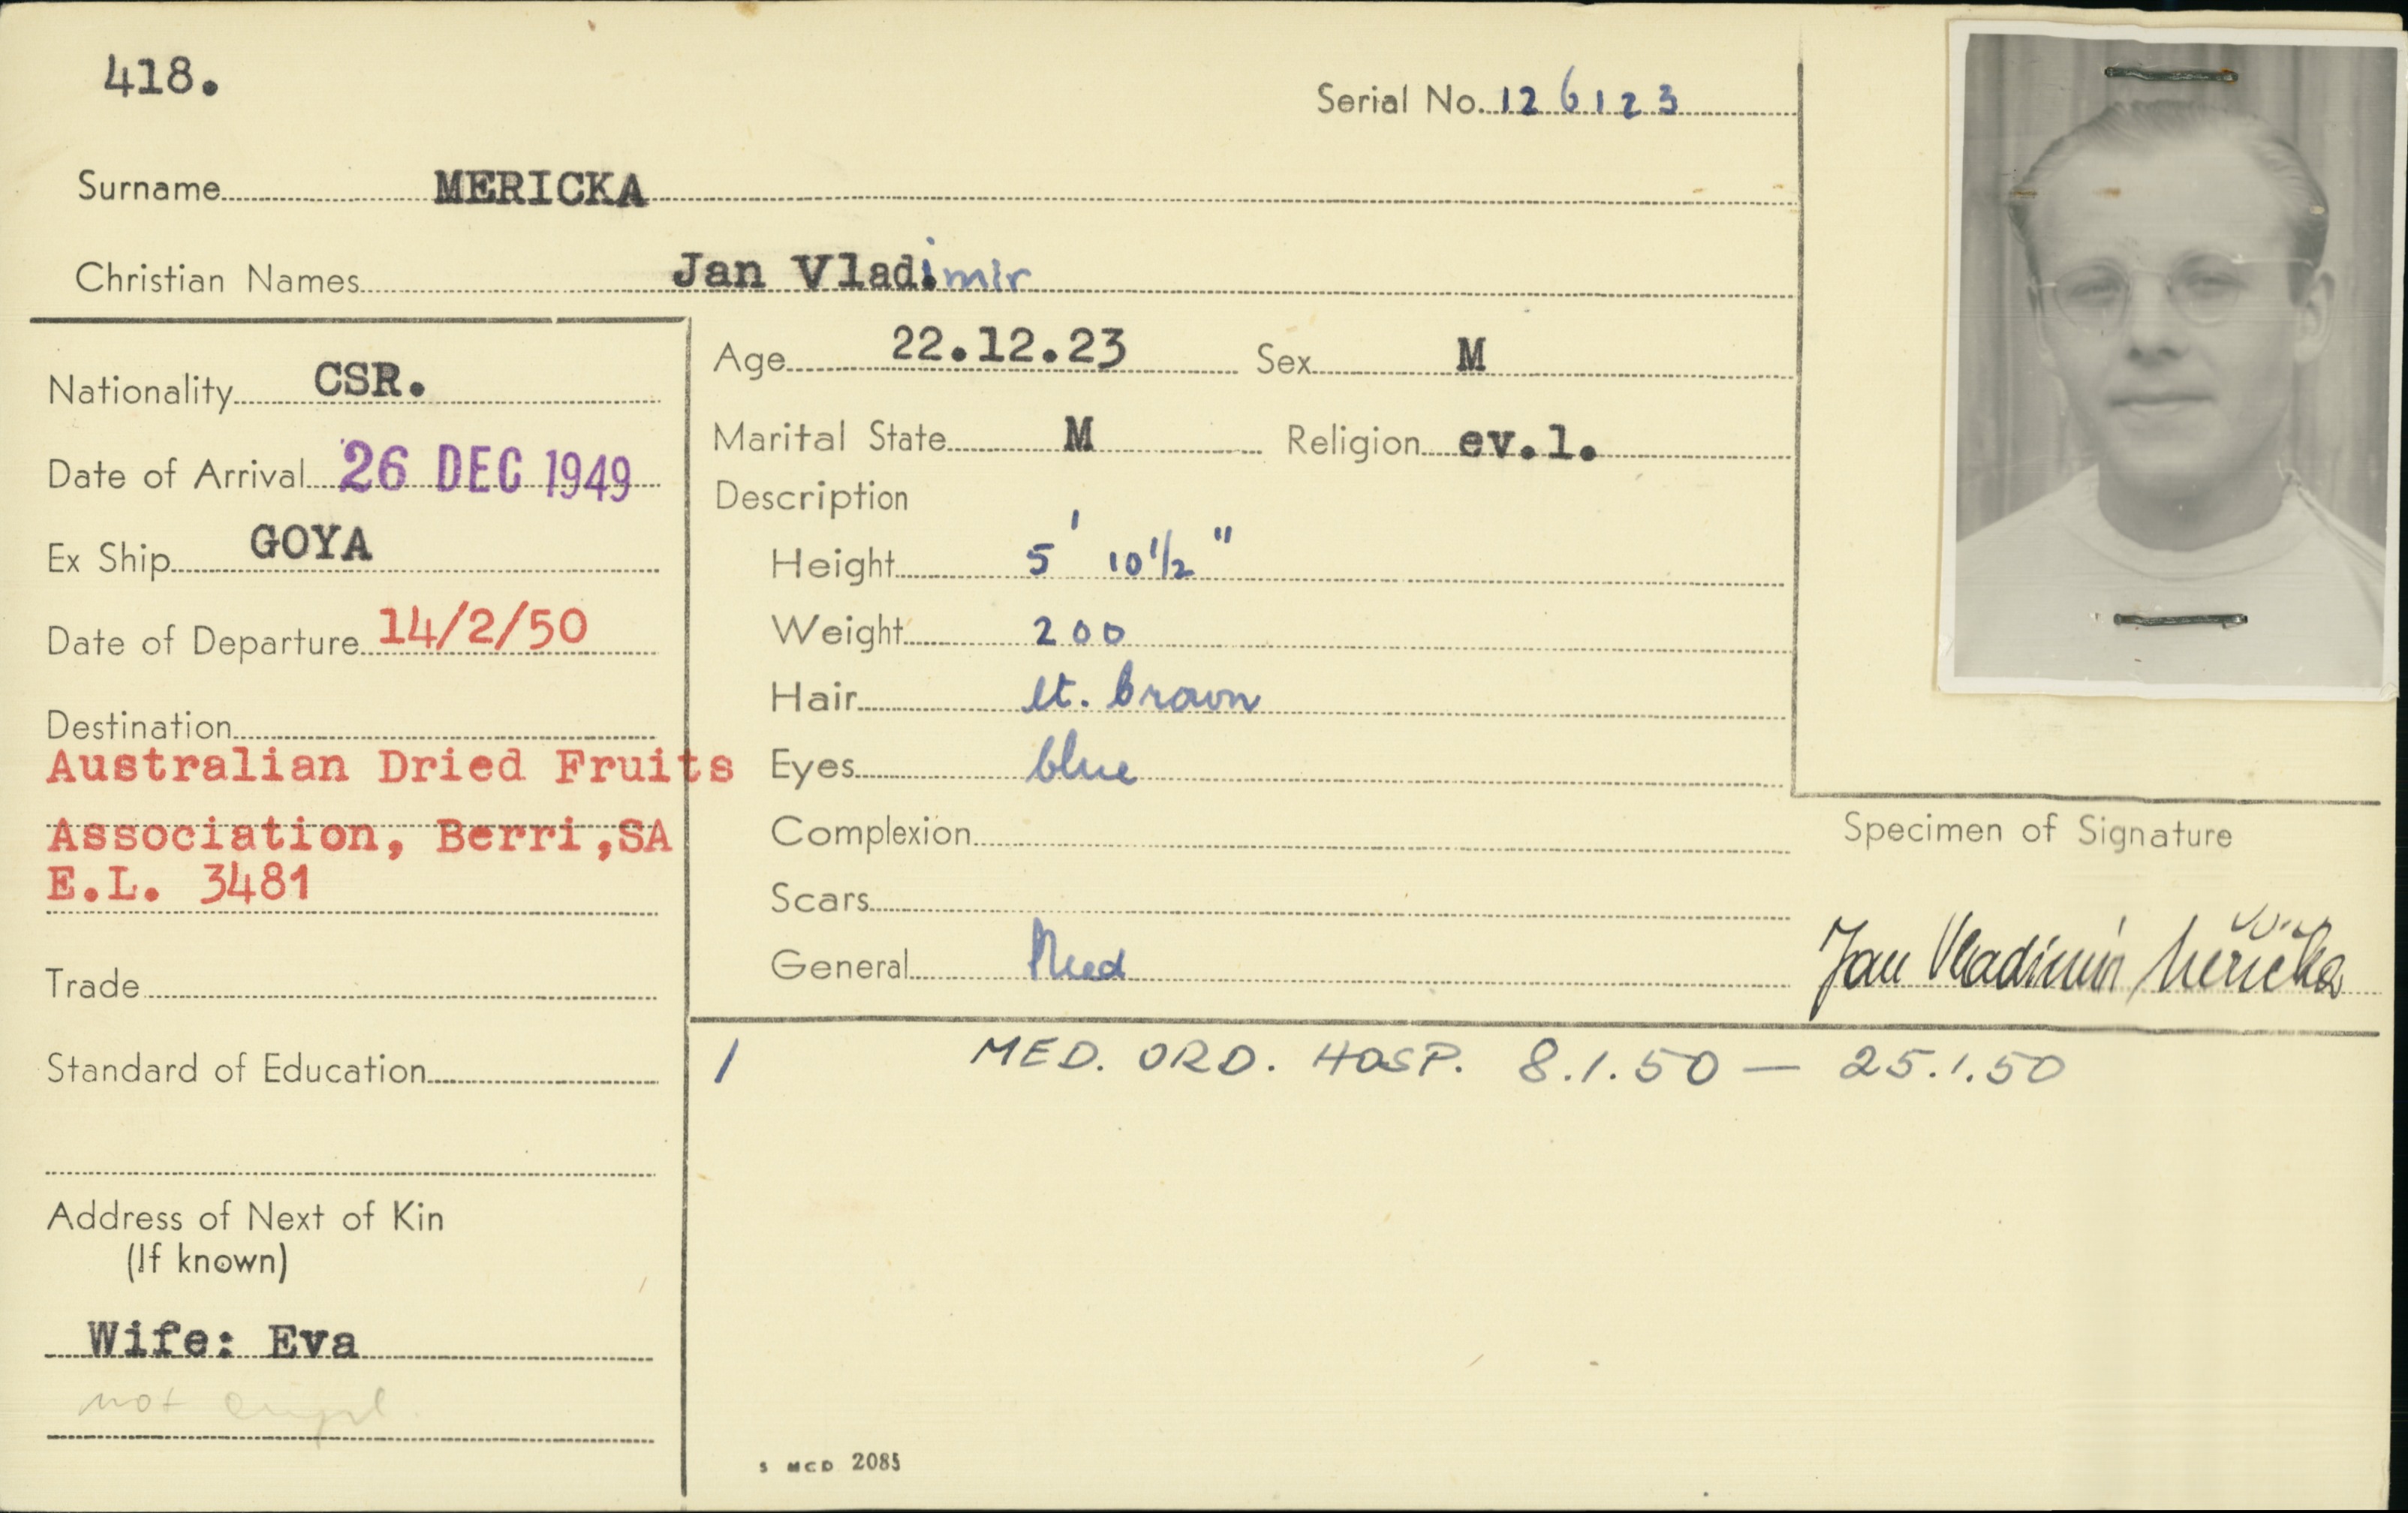 418.
Serial No. 126123
Surname MERICKA
Christian Names Jan Vlad.imir
Nationality CSR.
Date of Arrival 26 DEC 1949
Ex Ship GOYA
Date of Departure 14/2/50
Destination
Australian Dried Fruits
Association, Berri,SA
E.L. 3481
Trade
Standard of Education
Address of Next of Kin
(If known)
Wife: Eva
not empl.
Age 22.12.23 Sex M
Marital State M Religion ev.l.
Description
Height 5' 10 1/2"
Weight 200
Hair lt. brown
Eyes blue
Complexion
Scars
General Med
Specimen of Signature
Jan Vladimír Měřička
1 MED. ORD. HOSP. 8.1.50 — 25.1.50
S MCD 2085